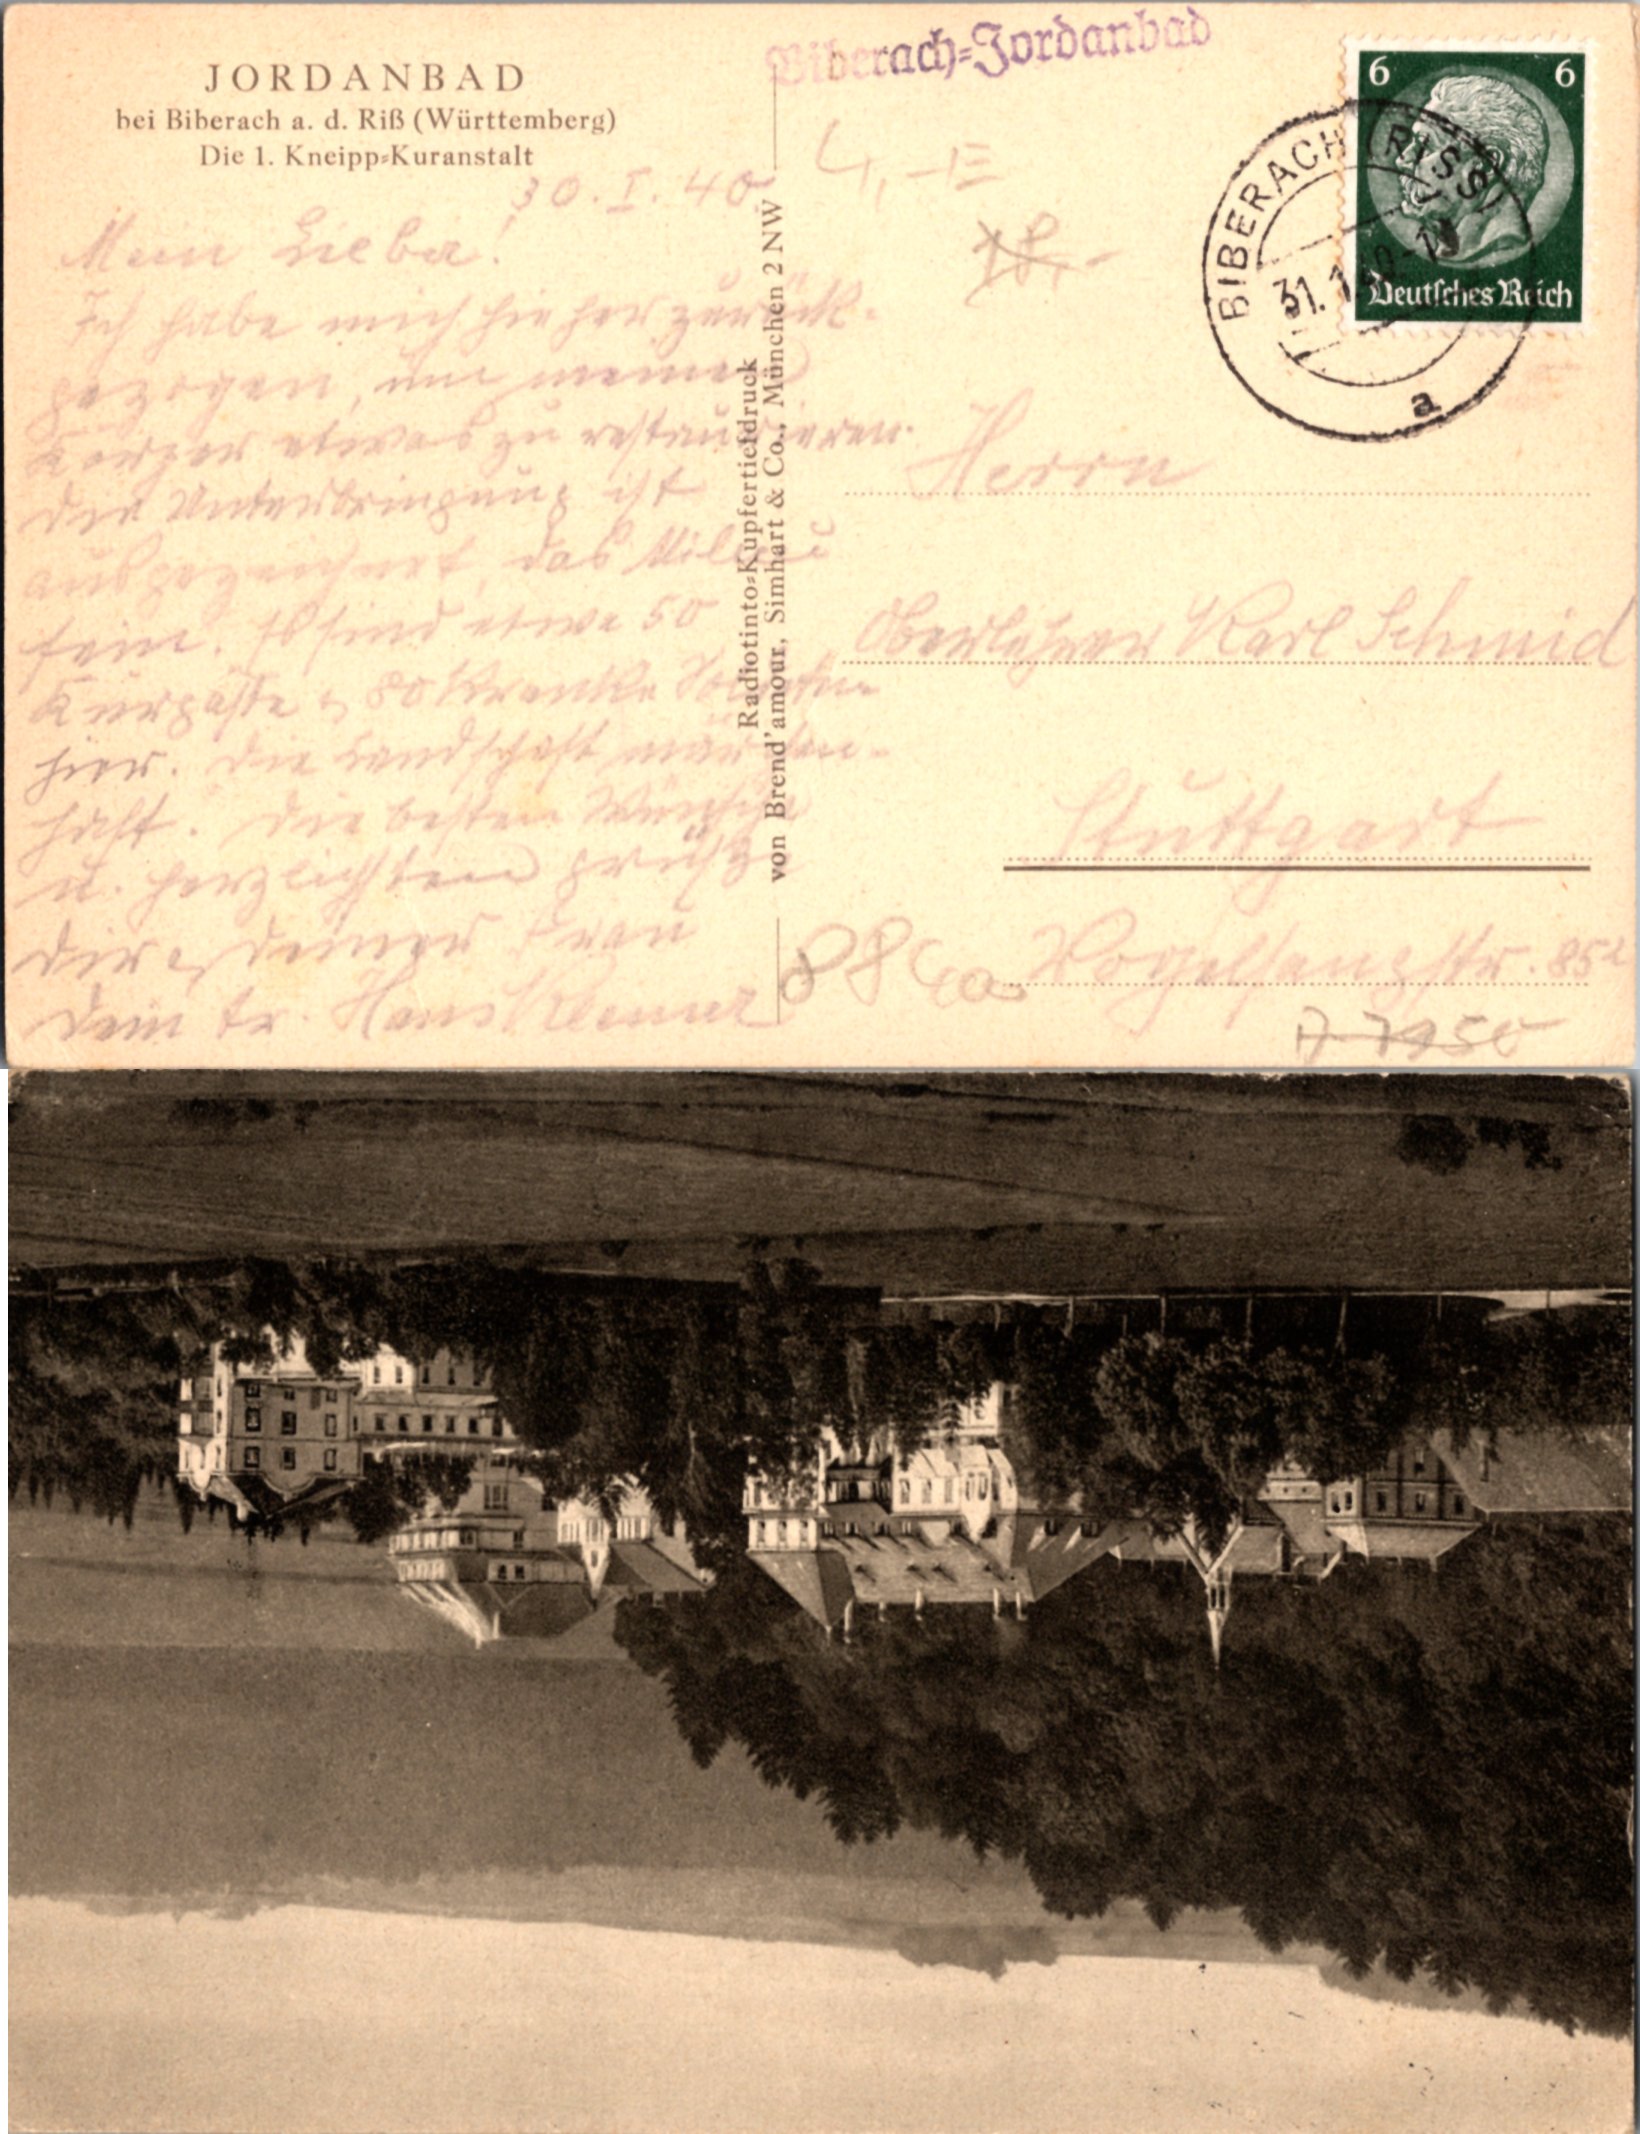 JORDANBAD
bei Biberach a. d. Riß (Württemberg)
Die 1. Kneipp-Kuranstalt
30. I. 40.
Mein Lieber!
Ich habe mich hieher zurück-
gezogen, um meinen
Körper etwas zu restaurieren.
Die Unterbringung ist
ausgezeichnet, das Milieu
fein. Es sind etwa 50
Kurgäste u. 80 kranke Soldaten
hier. Die Landschaft märchen-
haft. Die besten Wünsche
u. herzlichsten Grüße
Dir u. Deiner Frau
Dein tr. Hans
Radiotinto-Kupfertiefdruck
von Brend'amour, Simhart & Co., München 2 NW
Biberach-Jordanbad
4,-
18,-
6 6
Deutsches Reich
BIBERACH (RISS)
31.1.40-19
a
Herrn
Oberlehrer Karl Schmid
Stuttgart
Vogelsangstr. 85
88400